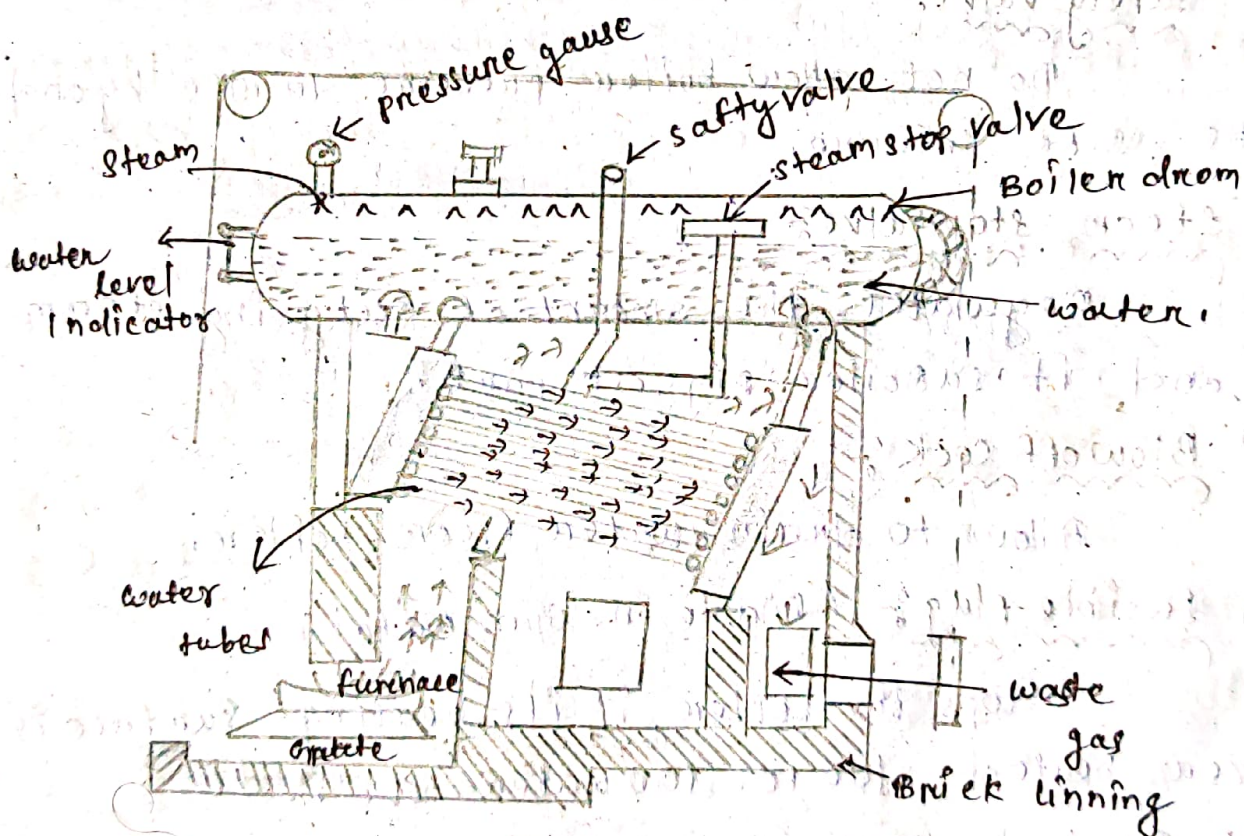 pressure gause
safty valve
steam stop valve
Steam
Boiler drom
water
level
Indicator
water.
water
tubes
furnnace
waste
gas
Brick linning